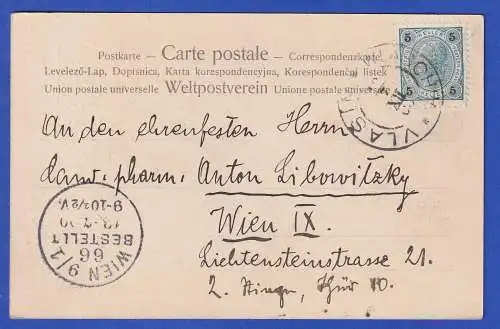 Postkarte – Carte postale – Correspondenzkarte
Levelező-Lap, Dopisnica, Karta korespondencyjna, Korespondenční listek
Union postale universelle Weltpostverein Unione postale universale
5 5
5 5
VLAŠIM
An den ehrenfesten Herrn
cand. pharm. Anton Libowitzky
Wien IX.
Liechtensteinstrasse 21.
2. Stiege, Thür 10.
WIEN 9/1
66
BESTELLT
9-10½V.